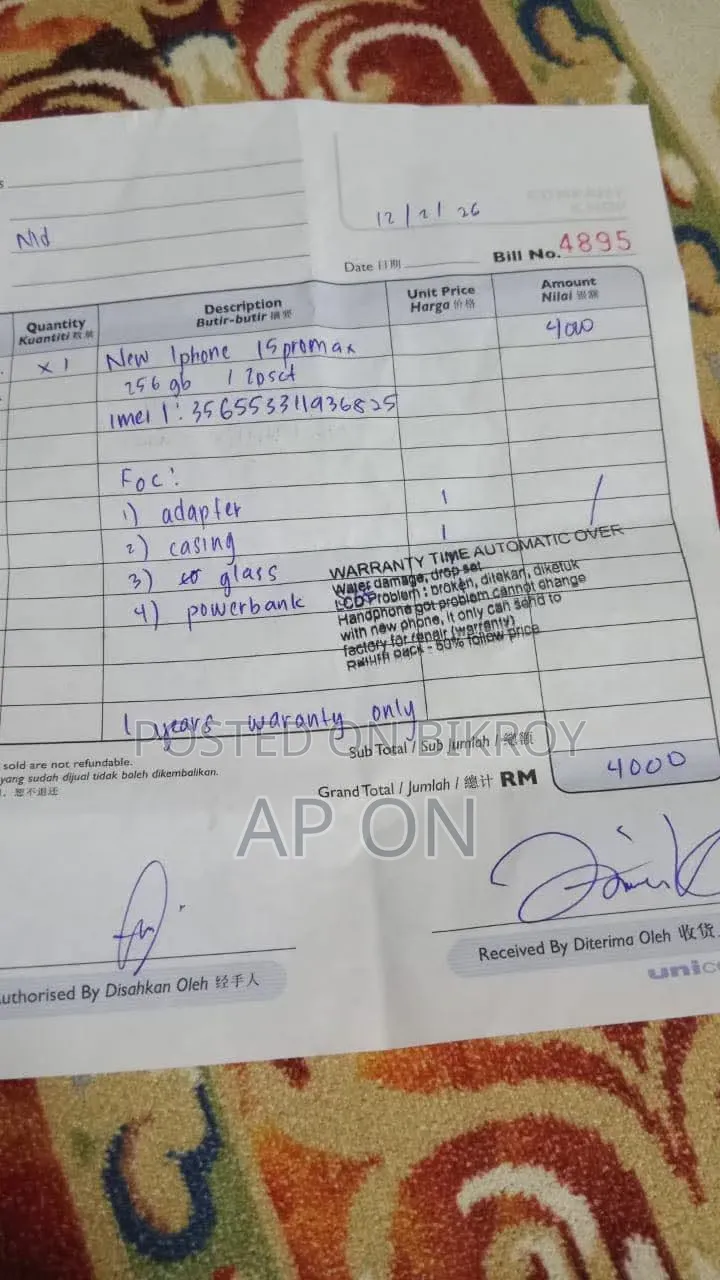 s
Md
12/2/26
Date 日期
Bill No. 4895
Quantity
Kuantiti 数量
Description
Butir-butir 摘要
Unit Price
Harga 价格
Amount
Nilai 银额
x 1 New Iphone 15 promax 4000
256 gb
Imei 1: 356553311936825
Foc:
1) adapter 1
2) casing 1
3) glass
4) powerbank
WARRANTY TIME AUTOMATIC OVER
Water damage, drop set
LCD Problem : broken, ditekan, diketuk
Handphone got problem cannot change
with new phone, it only can send to
factory for repair (warranty)
Return back - 50% follow price
1 years waranty only
POSTED ON BIKROY
sold are not refundable.
yang sudah dijual tidak boleh dikembalikan.
恕不退还
Sub Total / Sub Jumlah / 總額
Grand Total / Jumlah / 總计 RM 4000
AP ON
uthorised By Disahkan Oleh 经手人
Received By Diterima Oleh 收货
unic